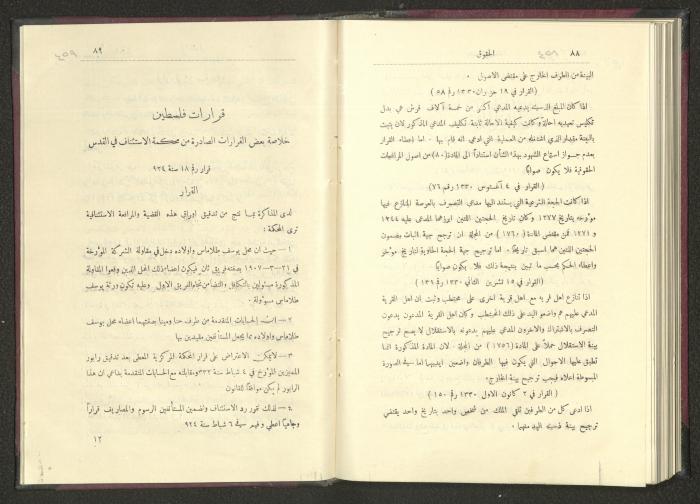 ٨٨
الحقوق
البينة من الطرف الخارج على مقتضى الاصول .
(القرار في ١٩ حزيران ١٣٣٠ رقم ٥٨)
اذا كان المبلغ الذي يدعيه المدعي اكثر من خمسة آلاف قرش هي بدل
تكليس تعهد به احالة وكانت كيفية الاحالة ثابتة فتكليف المدعي المذكور لان يثبت
بالبينة مقدار الذي من العملية التي ادعى انه قام بها . اما اعطاء القرار
بعدم جواز استماع الشهود بهذا الشأن استناداً الى المادة (٨٠) من اصول المحاكمات
الحقوقية فلا يكون صواباً
(القرار في ٤ اغستوس ١٣٣٠ رقم ٧٦)
اذا كانت الحجة الشرعية التي يستند اليها مدعي التصرف بالعرصة المتنازع فيها
مؤرخة بتاريخ ١٢٧٧ وكان تاريخ الحجتين اللتين ابرزهما المدعى عليه ١٢٤٤
و ١٢٧١ فمن مقتضى المادة (١٧٦٠) من المجلة ان ترجح جهة اثبات مضمون
الحجتين اللتين هما اسبق تاريخاً . اما ترجيح جهة الحجة الحاوية لتاريخ مؤخر
واعطاء الحكم بحسب ما تبين بنتيجة ذلك فلا يكون صواباً
(القرار في ١٥ تشرين الثاني ١٣٣٠ رقم ١٣٩)
اذا تنازع اهل قرية مع اهل قرية اخرى على محتطب وثبت ان اهل القرية
المدعى عليهم هم واضعو اليد على ذلك المحتطب وكان اهل القرية المدعون يدعون
التصرف بالاشتراك والآخرون المدعى عليهم يدعونه بالاستقلال لا يصح ترجيح
بينة الاستقلال حملاً على المادة (١٧٥٦) من المجلة . لان المادة المذكورة انما
تطبق على الاحوال التي يكون فيها الطرفان واضعين ايديهما اما في الصورة
المبسوطة اعلاه فيجب ترجيح بينة الخارج.
(القرار في ٢ كانون الاول ١٣٣٠ رقم ١٥٠)
اذا ادعى كل من الطرفين تلقي الملك من شخص واحد بتاريخ واحد يقتضي
ترجيح بينة ذي اليد منهما .
٨٩
قرارات فلسطين
خلاصة بعض القرارات الصادرة من محكمة الاستئناف في القدس
قرار رقم ١٨ سنة ٩٢٤
القرار
لدى المذاكرة بما نتج من تدقيق اوراق هذه القضية والمرافعة الاستئنافية
ترى المحكمة :
١ – حيث ان محل يوسف طلاماس واولاده دخل في مقاولة الشركة المؤرخة
في ٢١–٣–١٩٠٧ بصفته فريق ثان فيكون اعضاء ذلك المحل الذين وقعوا المقاولة
المذكورة مسئولين بالتكافل والتضامن تجاه الفريق الاول وعليه تكون ورثة يوسف
طلاماس مسئولة .
٢ – ان الحسابات المتقدمة من طرف حنا ومينا بصفتهما اعضاء محل يوسف
طلاماس واولاده مما يجعل المستأنفين مقيدين بها
٣ – لا يمكن الاعتراض على قرار المحكمة المركزية المعطى بعد تدقيق رابور
المميزين المؤرخ في ٤ شباط سنة ٣٣٢ ومقابلته مع الحسابات المتقدمة بداعي ان هذا
الرابور لم يكن موافقاً للقانون
٤ – لذلك تقرر رد الاستئناف وتضمين المستأنفين الرسوم والمصاريف قراراً
وجاهياً اعطي وفهم في ٦ شباط سنة ٩٢٤
١٢